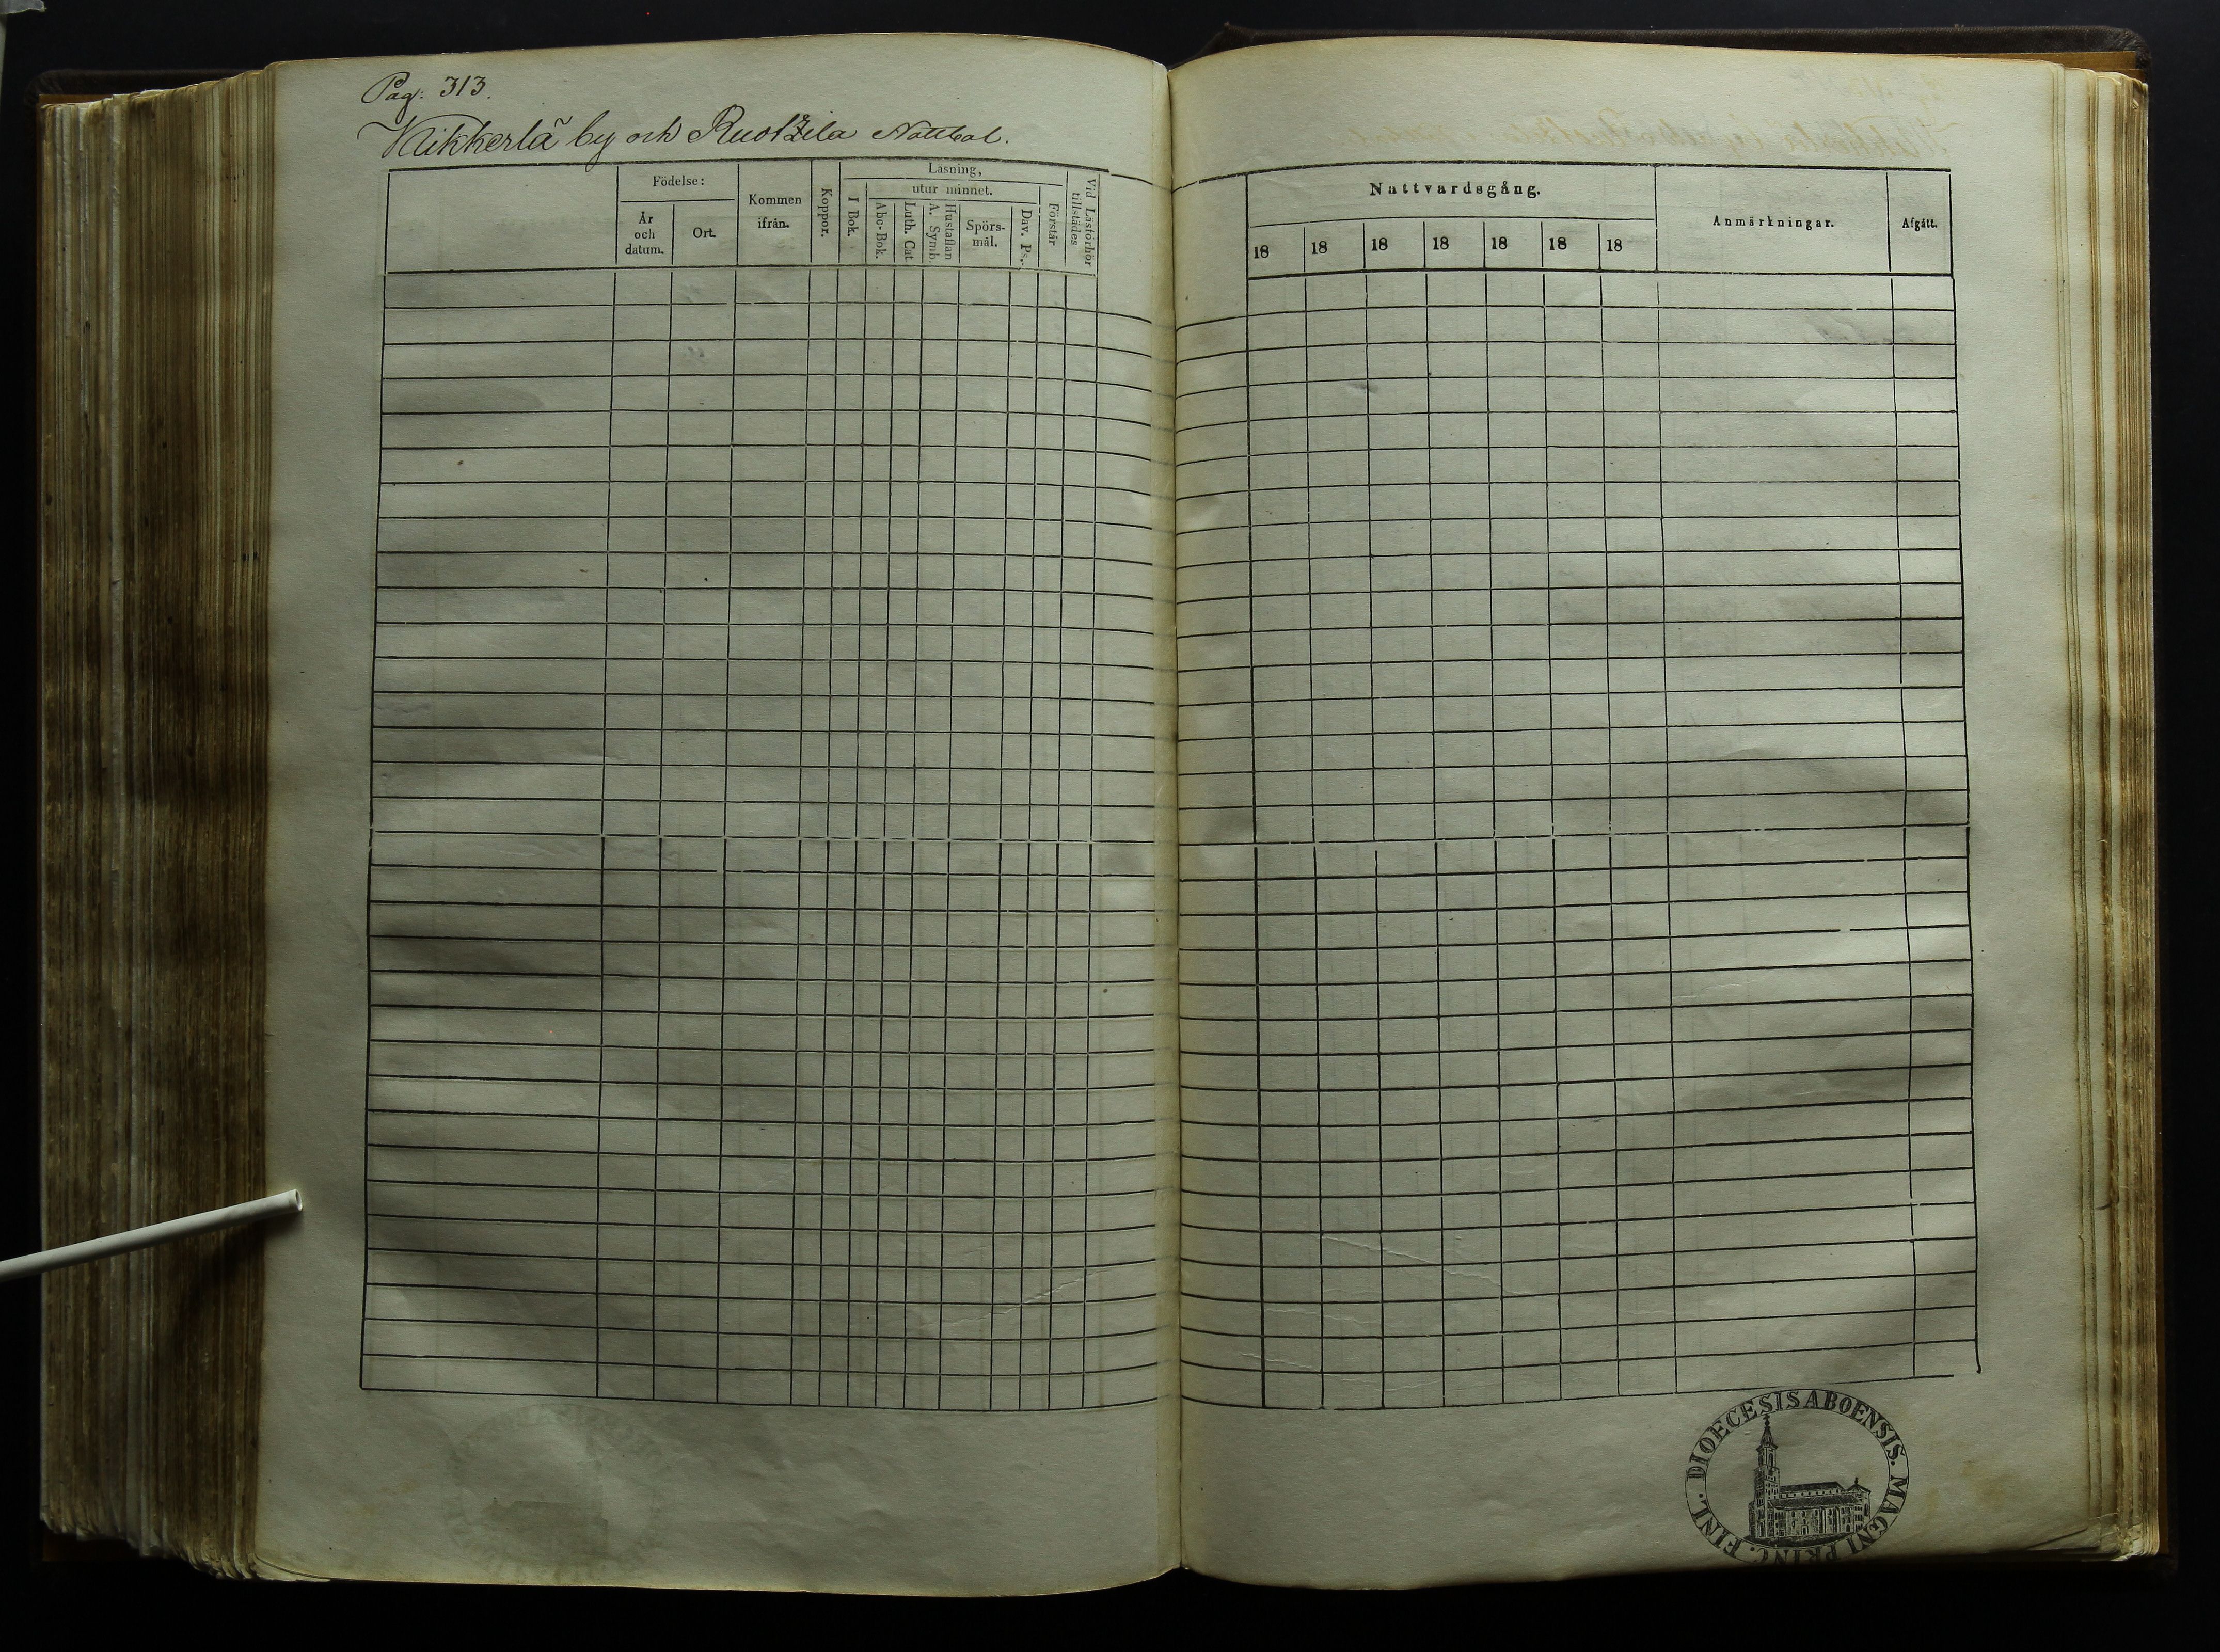 Pag. 313.
Nikkerlä by och Ruotzila Nattbol.
Födelse:
År
och
datum.
Ort.
Kommen
ifrån.
Koppor.
Läsning,
I Bok.
utur minnet.
Abc-Bok.
Luth. Cat
Hustaflan
A. Symb.
Spörs-
mål.
Dav. Ps.
Förstår
Vid Läsförhör
tillstädes
Nattvardsgång.
18 18 18 18 18 18 18
Anmärkningar.
Afgått.
DIOECESIS ABOENSIS. MAGNI PRINC. FINL.